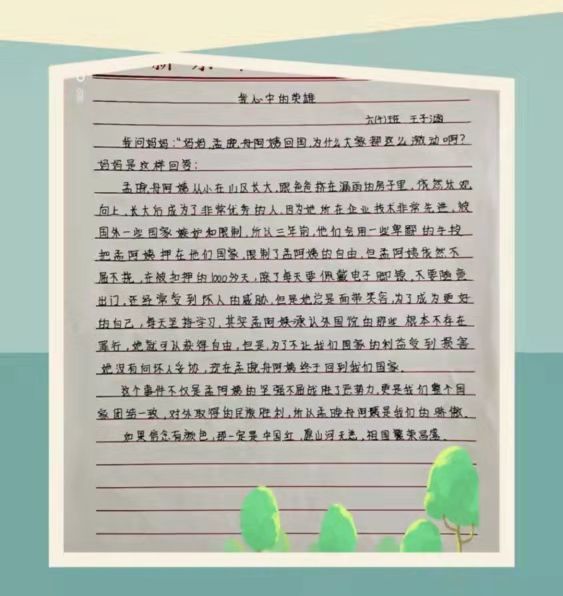 我心中的英雄
六(1)班 王子涵
我问妈妈:“妈妈,孟晚舟阿姨回国,为什么大家都这么激动啊?
妈妈是这样回答:
孟晚舟阿姨从小在山区长大,跟爸爸挤在漏雨的房子里,依然乐观
向上,长大后成为了非常优秀的人,因为她所在企业技术非常先进,被
国外一些国家嫉妒和限制,所以三年前,他们会用一些卑鄙的手段
把孟阿姨押在他们国家,限制了孟阿姨的自由,但孟阿姨依然不
屈不挠,在被扣押的1000多天,除了每天要佩戴电子脚镣,不要随意
出门,还经常受到坏人的威胁,但是她总是面带笑容,为了成为更好
的自己,每天坚持学习,其实孟阿姨承认外国说的那些根本不存在
罪行,她就可以获得自由,但是,为了不让我们国家的利益受到损害
她没有向坏人妥协,现在孟晚舟阿姨终于回到我们国家。
这个事件不仅是孟阿姨的坚强不屈战胜了恶势力,更是我们整个国
家团结一致,对外取得的民族胜利,所以孟晚舟阿姨是我们的骄傲。
如果信念有颜色,那一定是中国红,愿山河无恙,祖国繁荣昌盛。